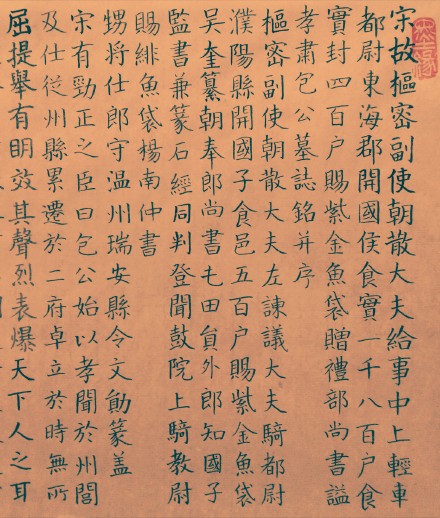 宋故樞密副使朝散大夫給事中上輕車
都尉東海郡開國侯食實一千八百户食
實封四百户賜紫金魚袋贈禮部尚書謚
孝肅包公墓誌銘并序
樞密副使朝散大夫左諫議大夫騎都尉
濮陽縣開國子食邑五百户賜紫金魚袋
吳奎纂朝奉郎尚書屯田員外郎知國子
監書兼篆石經同判登聞鼓院上騎教尉
賜緋魚袋楊南仲書
甥將仕郎守温州瑞安縣令文勛篆蓋
宋有勁正之臣曰包公始以孝聞於州閭
及仕從州縣累遷於二府卓立於時無所
屈提舉有明效其聲烈表爆天下人之耳